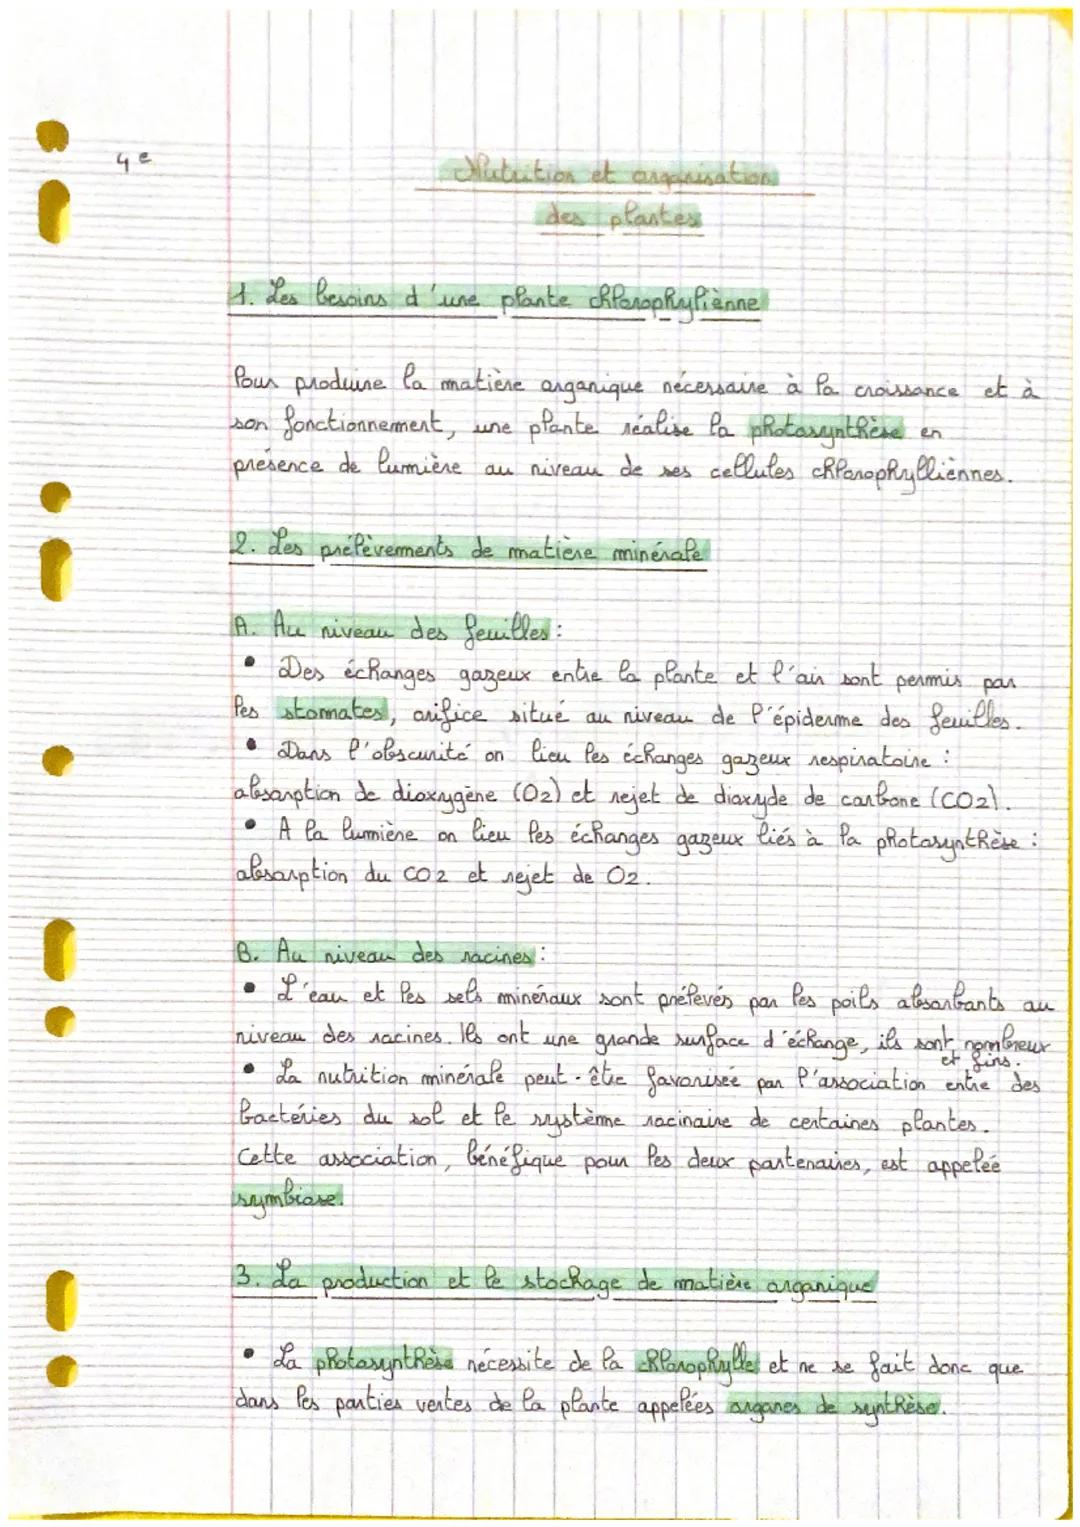 4e
Nutrition et organisation
des plantes
1. Les besoins d'une plante chlorophyliènne
Pour produire la matière organique nécessaire à la croissance et à
son fonctionnement, une plante réalise la photosynthèse en
présence de lumière au niveau de ses cellules chlorophylliènnes.
2. Les prélèvements de matière minérale
A. Au niveau des feuilles :
• Des échanges gazeux entre la plante et l'air sont permis par
les stomates, orifice situé au niveau de l'épiderme des feuilles.
• Dans l'obscurité on lieu les échanges gazeux respiratoire :
absorption de dioxygène (O2) et rejet de dioxyde de carbone (CO2).
• A la lumière on lieu les échanges gazeux liés à la photosynthèse :
absorption du CO2 et rejet de O2.
B. Au niveau des racines :
• L'eau et les sels minéraux sont prélevés par les poils absorbants au
niveau des racines. Ils ont une grande surface d'échange, ils sont nombreux
et fins.
• La nutrition minérale peut-être favorisée par l'association entre des
bactéries du sol et le système racinaire de certaines plantes.
Cette association, bénéfique pour les deux partenaires, est appelée
symbiose.
3. La production et le stockage de matière organique
• La photosynthèse nécessite de la chlorophylle et ne se fait donc que
dans les parties vertes de la plante appelées organes de synthèse.